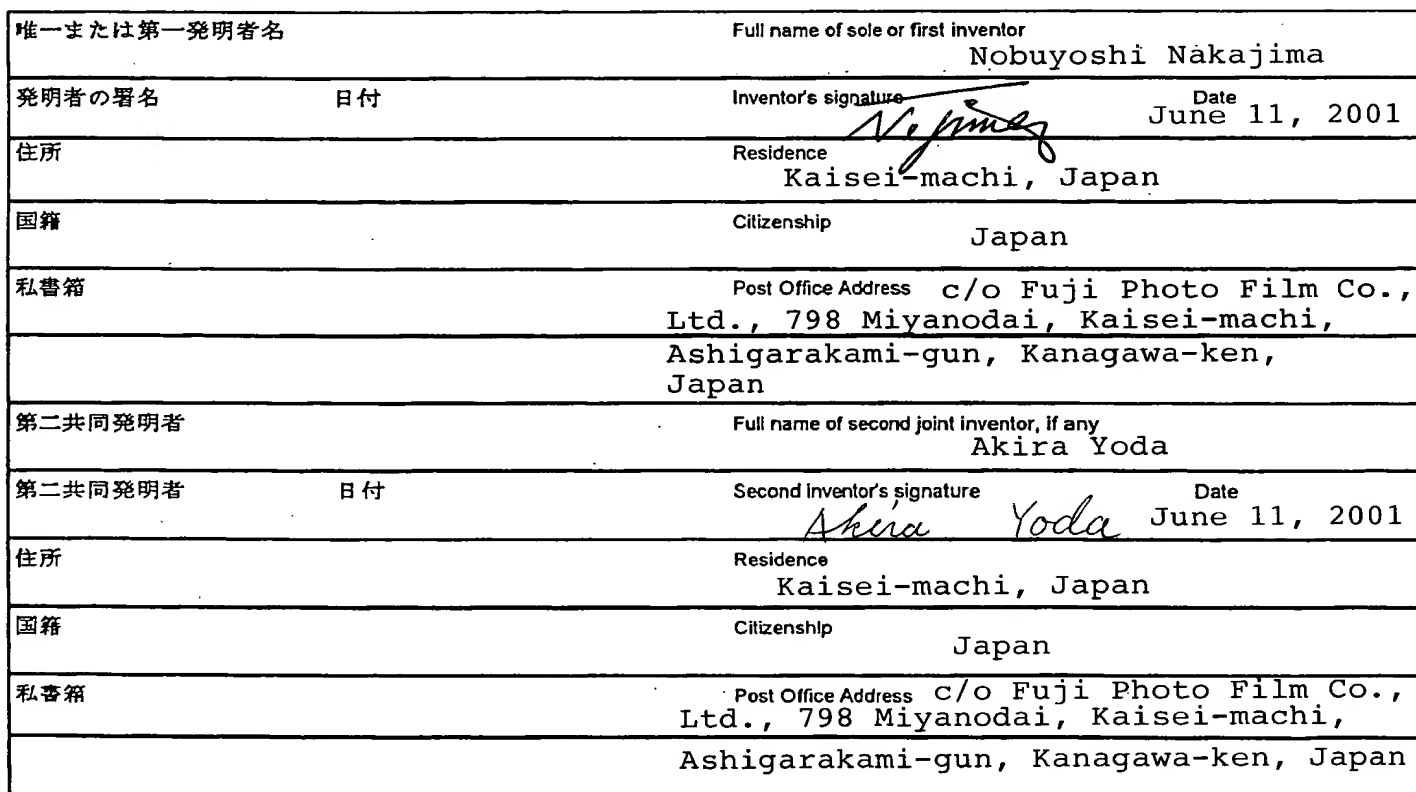 唯一または第一発明者名 Full name of sole or first inventor
Nobuyoshi Nakajima
発明者の署名 日付 Inventor's signature Date
June 11, 2001
住所 Residence
Kaisei-machi, Japan
国籍 Citizenship
Japan
私書箱 Post Office Address c/o Fuji Photo Film Co.,
Ltd., 798 Miyanodai, Kaisei-machi,
Ashigarakami-gun, Kanagawa-ken,
Japan
第二共同発明者 Full name of second joint inventor, if any
Akira Yoda
第二共同発明者 日付 Second inventor's signature Date
Akira Yoda June 11, 2001
住所 Residence
Kaisei-machi, Japan
国籍 Citizenship
Japan
私書箱 Post Office Address c/o Fuji Photo Film Co.,
Ltd., 798 Miyanodai, Kaisei-machi,
Ashigarakami-gun, Kanagawa-ken, Japan